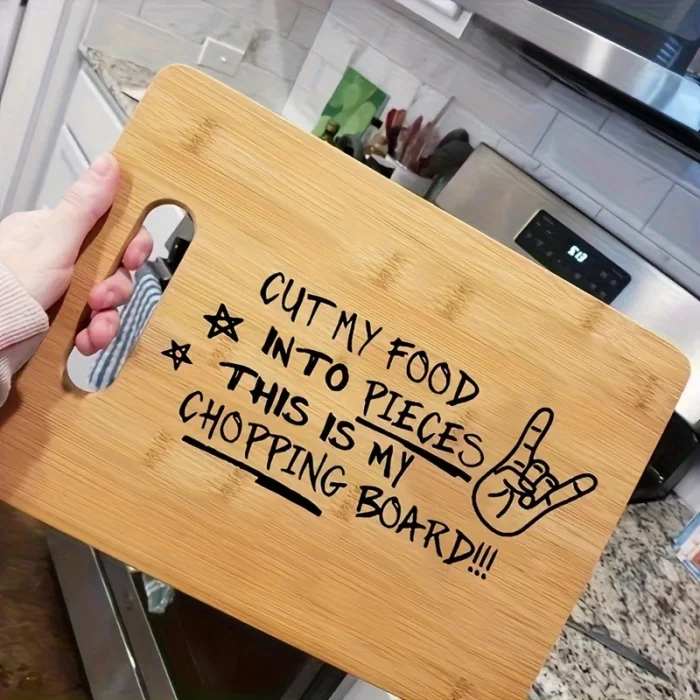 CUT MY FOOD
INTO PIECES
THIS IS MY
CHOPPING BOARD!!!